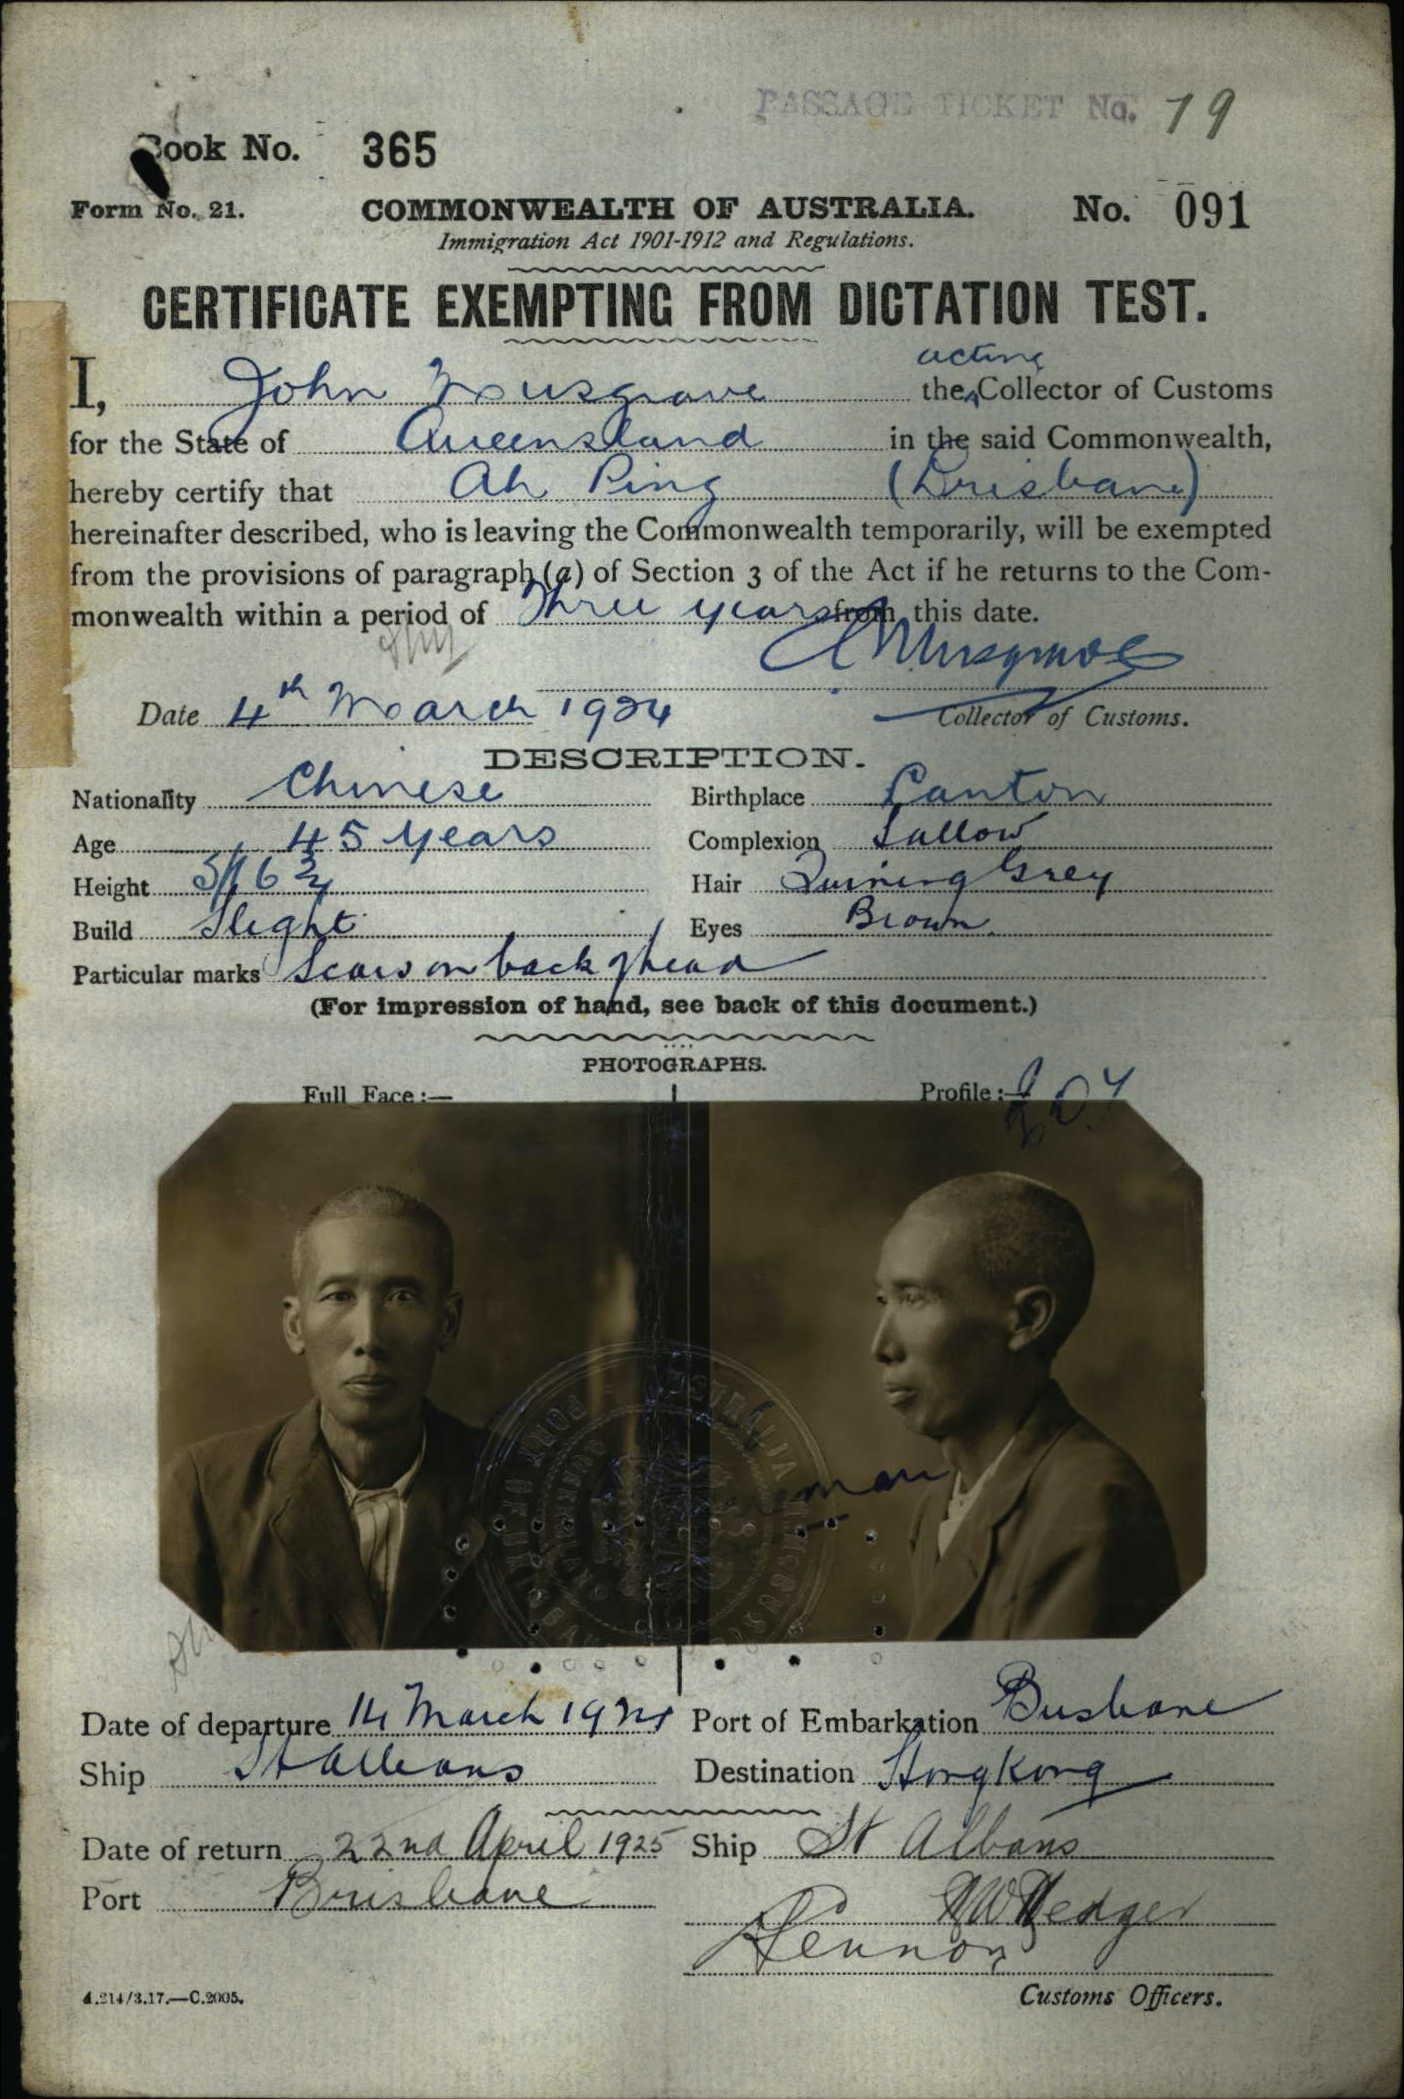 PASSAGE TICKET No. 79
Book No. 365
Form No. 21. COMMONWEALTH OF AUSTRALIA. No. 091
Immigration Act 1901-1912 and Regulations.
CERTIFICATE EXEMPTING FROM DICTATION TEST.
acting
I, John Musgrave the Collector of Customs
for the State of Queensland in the said Commonwealth,
hereby certify that Ah Ping (Brisbane)
hereinafter described, who is leaving the Commonwealth temporarily, will be exempted
from the provisions of paragraph (a) of Section 3 of the Act if he returns to the Com-
monwealth within a period of Three years from this date.
Musgrave
Date 4th March 1924 Collector of Customs.
DESCRIPTION.
Nationality Chinese Birthplace Canton
Age 45 Years Complexion Sallow
Height Hair Turning Grey
Build Slight Eyes Brown.
Particular marks Scars on back of head
(For impression of hand, see back of this document.)
PHOTOGRAPHS.
Full Face:— Profile:—
Date of departure 14 March 1924 Port of Embarkation Brisbane
Ship St Albans Destination Hongkong
Date of return 22nd April 1925 Ship St Albans
Port Brisbane
Customs Officers.
4.214/3.17.—C.2005.